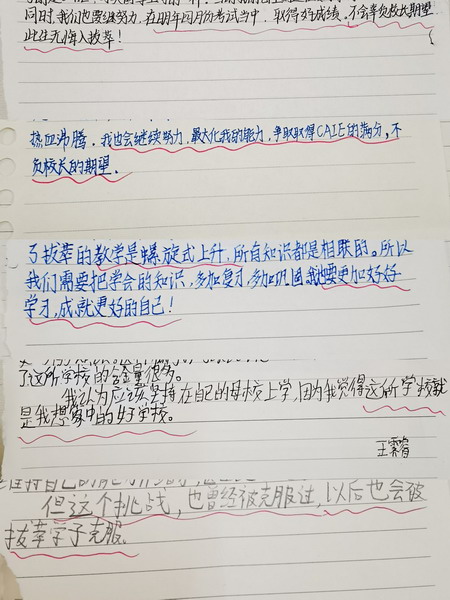 同时,我们也要继续努力,在明年四月份考试当中,取得好成绩。不会辜负校长期望
此生无悔入拔萃!
热血沸腾,我也会继续努力,最大化我的能力,争取取得CAIE的满分,不
负校长的期望.
了拔萃的教学是螺旋式上升,所有知识都是相联的。所以
我们需要把学会的知识,多加复习,多加巩固,就要更加好好
学习,成就更好的自己!
了这所学校的含金量很高。
我认为应该坚持在自己的母校上学,因为我觉得这所学校就
是我想象中的好学校。
王霁睿
但这个挑战,也曾经被克服过,以后也会被
拔萃学子克服。